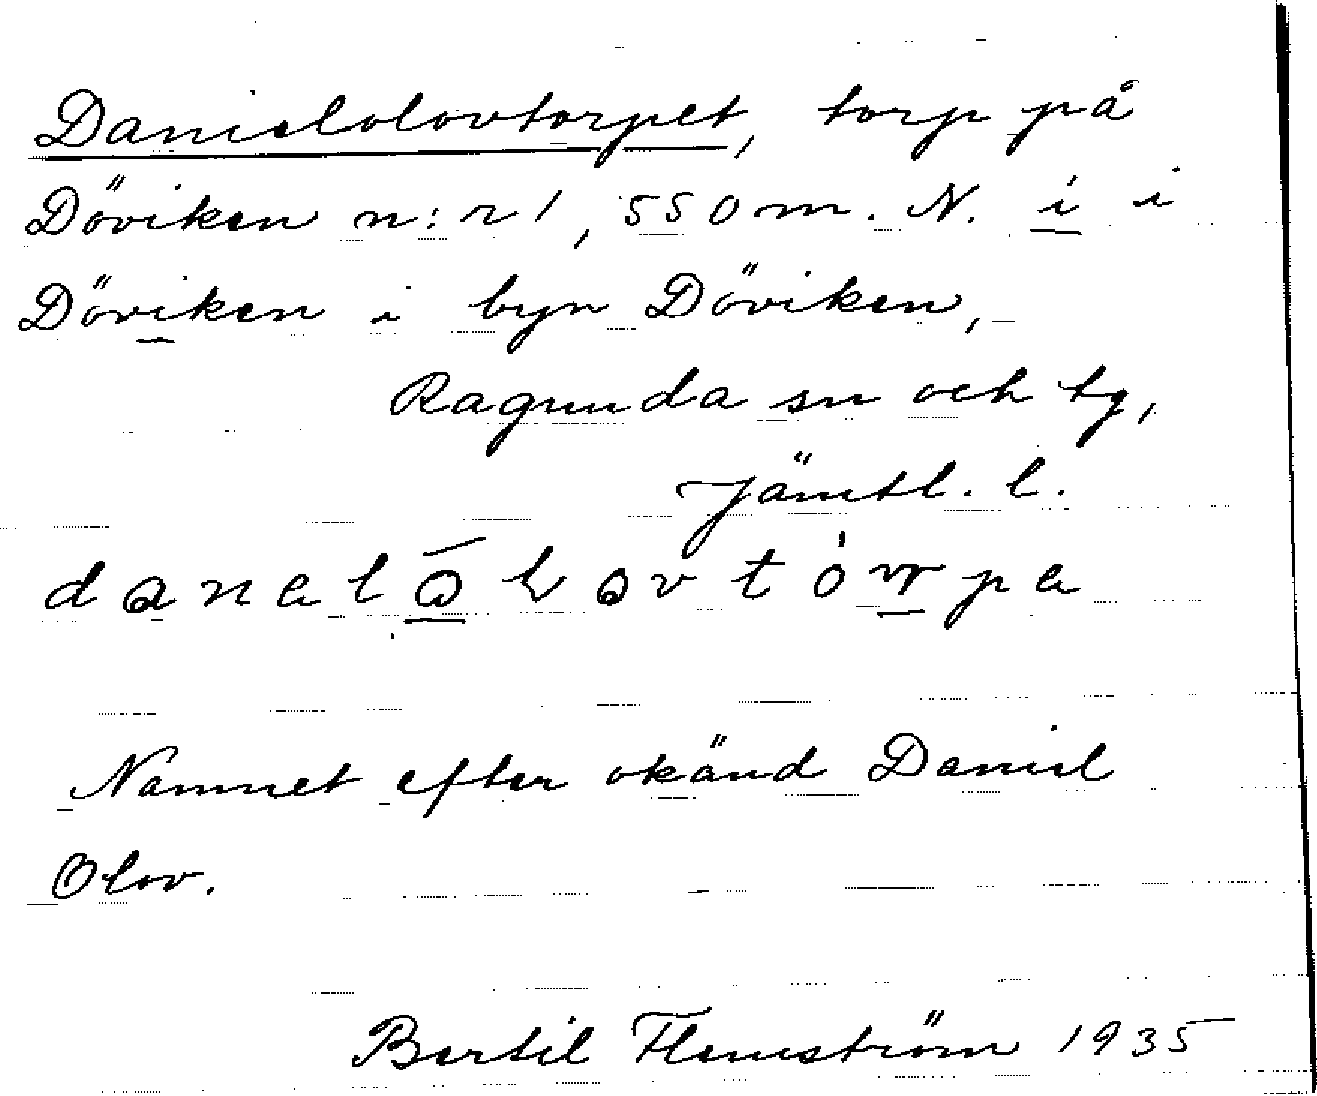 Danielolovtorpet, torp på
Döviken n:r 1, 550 m. N. i i
Döviken i byn Döviken,
Ragunda sn och tg,
Jämtl. l.
Namnet efter okänd Daniel
Olov.
Bertil Flemström 1935